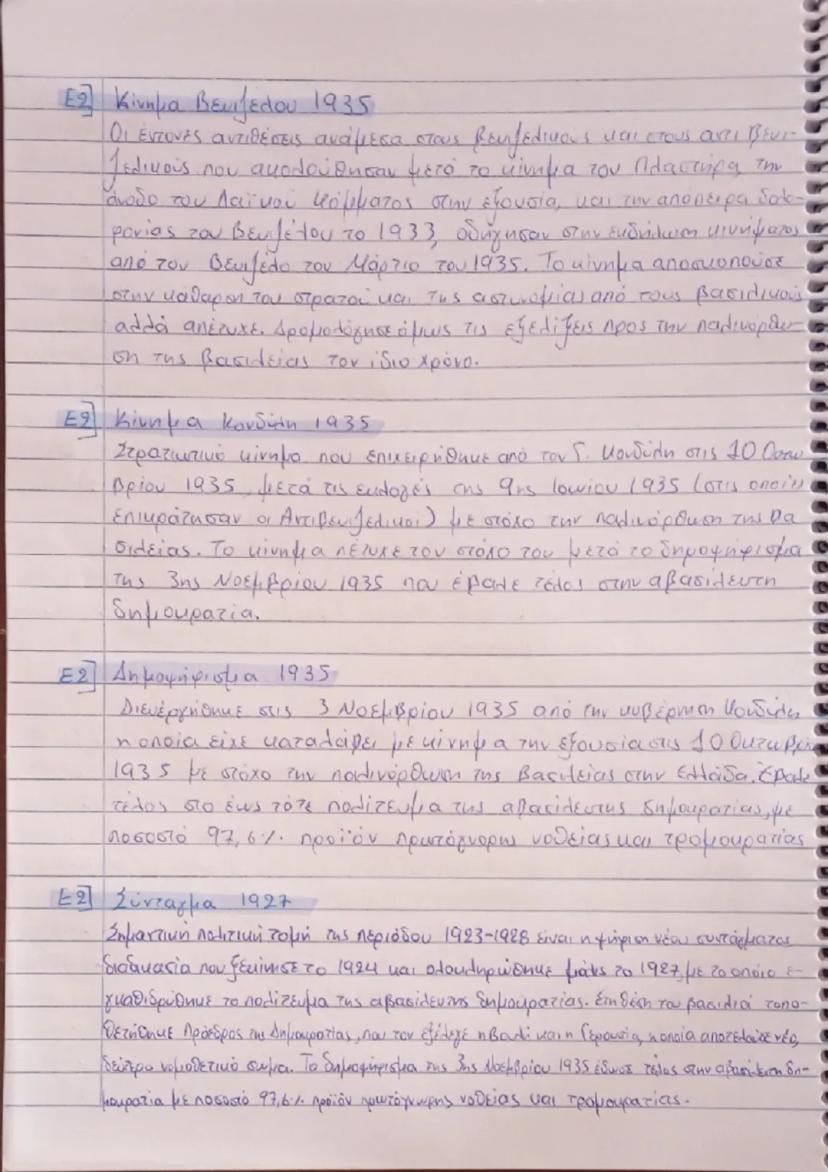 Ε2] Κίνημα Βενιζέλου 1935
Οι έντονες αντιθέσεις ανάμεσα στους βενιζελικούς και στους αντιβενι-
ζελικούς που ακολούθησαν μετά το κίνημα του Πλαστήρα, την
άνοδο του Λαϊκού Κόμματος στην εξουσία, και την απόπειρα δολο-
φονίας του Βενιζέλου το 1933, οδήγησαν στην εκδήλωση κινήματος
από τον Βενιζέλο τον Μάρτιο του 1935. Το κίνημα αποσκοπούσε
στην κάθαρση του στρατού και της αστυνομίας από τους βασιλικούς
αλλά απέτυχε. Δρομολόγησε όμως τις εξελίξεις προς την παλινόρθω-
ση της βασιλείας τον ίδιο χρόνο.
Ε2] Κίνημα Κονδύλη 1935
Στρατιωτικό κίνημα που επιχειρήθηκε από τον Γ. Κονδύλη στις 10 Οκτω
βρίου 1935, μετά τις εκλογές της 9ης Ιουνίου 1935 (στις οποίες
επικράτησαν οι Αντιβενιζελικοί) με στόχο την παλινόρθωση της βα
σιλείας. Το κίνημα πέτυχε τον στόχο του μετά το δημοψήφισμα
της 3ης Νοεμβρίου 1935 που έβαλε τέλος στην αβασίλευτη
δημοκρατία.
Ε2] Δημοψήφισμα 1935
Διενεργήθηκε στις 3 Νοεμβρίου 1935 από την κυβέρνηση Κονδύλη,
η οποία είχε καταλάβει με κίνημα την εξουσία στις 10 Οκτωβρίου
1935 με στόχο την παλινόρθωση της βασιλείας στην Ελλάδα. Έβαλε
τέλος στο έως τότε πολίτευμα της αβασίλευτης δημοκρατίας, με
ποσοστό 97,6% προϊόν πρωτόγνωρης νοθείας και τρομοκρατίας
Ε2] Σύνταγμα 1927
Σημαντική πολιτική τομή της περιόδου 1923-1928 είναι η ψήφιση νέου συντάγματος
διαδικασία που ξεκίνησε το 1924 και ολοκληρώθηκε μόλις το 1927, με το οποίο ε-
γκαθιδρύθηκε το πολίτευμα της αβασίλευτης δημοκρατίας. Στη θέση του βασιλιά τοπο-
θετήθηκε Πρόεδρος της Δημοκρατίας, που τον εξέλεγε η Βουλή και η Γερουσία, η οποία αποτελούσε νέο,
δεύτερο νομοθετικό σώμα. Το δημοψήφισμα της 3ης Νοεμβρίου 1935 έδωσε τέλος στην αβασίλευτη δη-
μοκρατία με ποσοστό 97,6% προϊόν πρωτόγνωρης νοθείας και τρομοκρατίας.